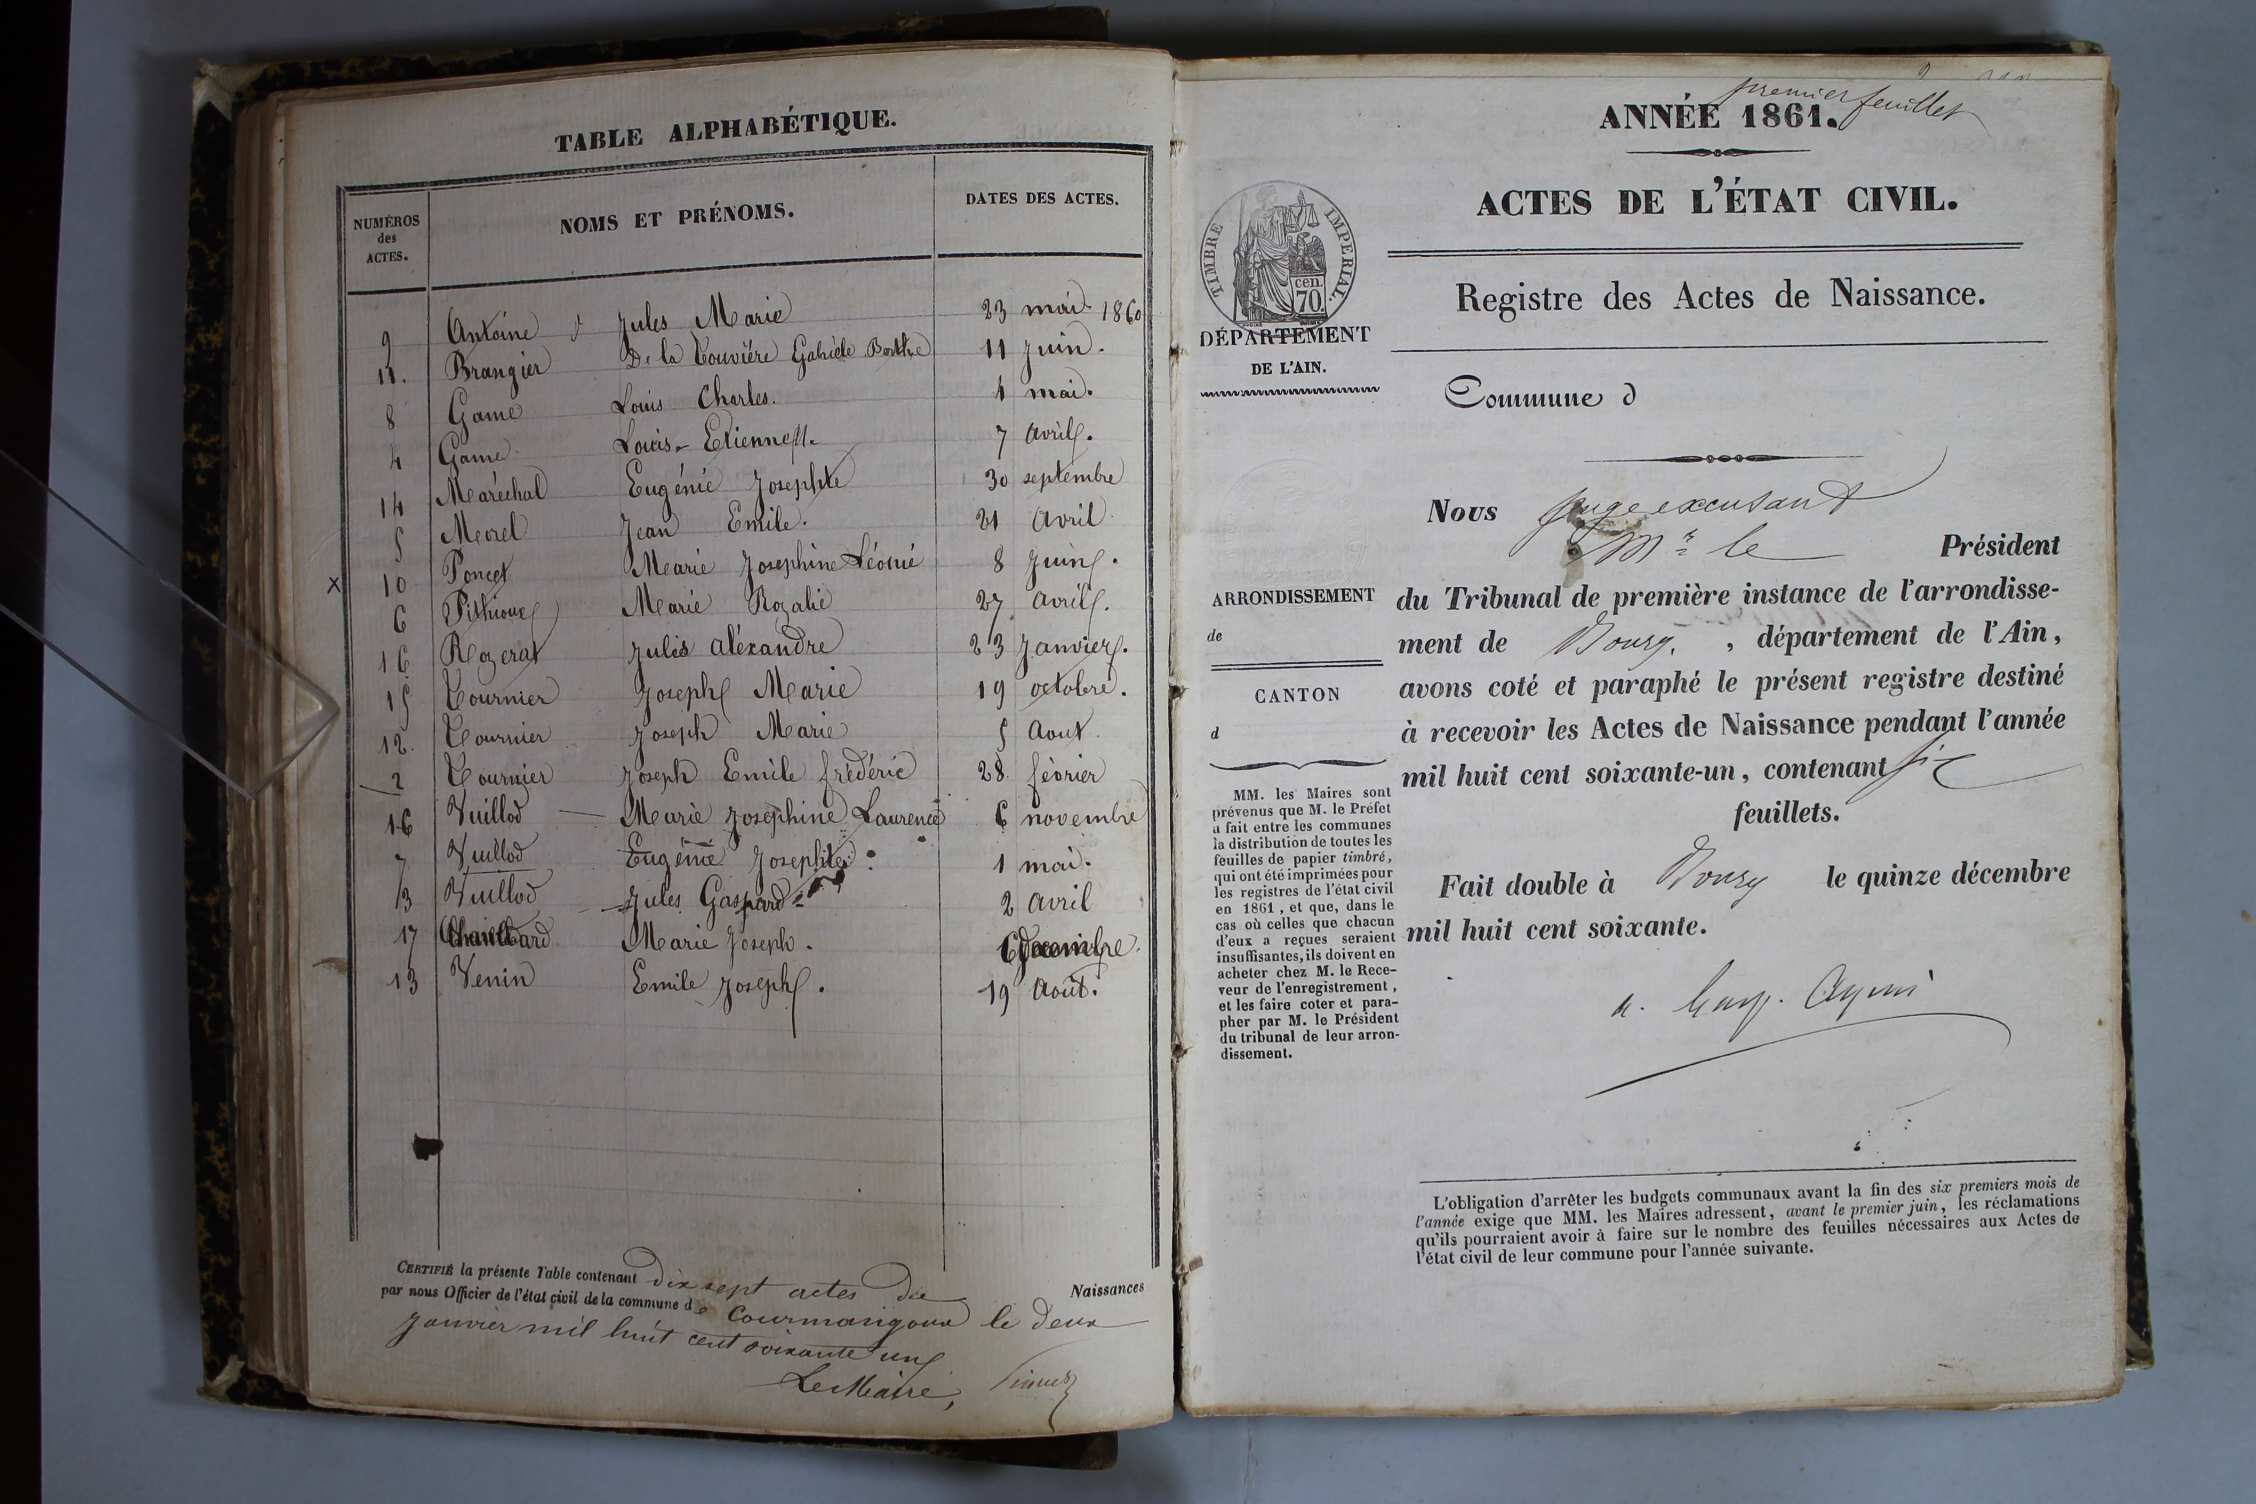 TABLE ALPHABÉTIQUE.
NUMÉROS des ACTES.
NOMS ET PRÉNOMS.
DATES DES ACTES.
9 Antoine Jules Marie 23 mai 1860
11. Brangier De la Touvière Gabrièle Berthe 11 juin.
8 Game Louis Charles. 1 mai.
4 Game Louis-Etienne 7 avril.
14 Maréchal Eugénie Josephte 30 septembre
5 Morel Jean Emile. 21 avril
x 10 Poncet Marie Josephine Léonie 8 juin.
6 Pithioux Marie Rozalie 27 avril.
1 Rozerat Jules aléxandre 23 Janvier.
15 Tournier Joseph Marie 19 octobre.
12. Tournier Joseph Marie 5 Aout
2 Tournier Joseph Emile frédéric 28 février
16 Vuillod Marie Josephine Laurence 6 novembre
7 Vuillod Eugénie Josephte 1 mai.
3 Vuillod Jules Gaspard 2 avril
17 Marie Joseph. Décembre.
13 Venin Emile Joseph. 19 Août.
CERTIFIÉ la présente Table contenant dix sept actes de Naissances
par nous Officier de l'état civil de la commune de Courmangoux le deux
Janvier mil huit cent soixante un
Le Maire,
premier feuillet
ANNÉE 1861.
ACTES DE L'ÉTAT CIVIL.
Registre des Actes de Naissance.
TIMBRE IMPERIAL.
70 cen.
DÉPARTEMENT
DE L'AIN.
Commune d
Nous juge excusant
Mr le Président
ARRONDISSEMENT
de
CANTON
d
du Tribunal de première instance de l'arrondisse-
ment de Bourg. , département de l'Ain,
avons coté et paraphé le présent registre destiné
à recevoir les Actes de Naissance pendant l'année
mil huit cent soixante-un, contenant six
feuillets.
MM. les Maires sont
prévenus que M. le Préfet
a fait entre les communes
la distribution de toutes les
feuilles de papier timbré,
qui ont été imprimées pour
les registres de l'état civil
en 1861, et que, dans le
cas où celles que chacun
d'eux a reçues seraient
insuffisantes, ils doivent en
acheter chez M. le Rece-
veur de l'enregistrement,
et les faire coter et para-
pher par M. le Président
du tribunal de leur arron-
dissement.
Fait double à Bourg le quinze décembre
mil huit cent soixante.
L'obligation d'arrêter les budgets communaux avant la fin des six premiers mois de
l'année exige que MM. les Maires adressent, avant le premier juin, les réclamations
qu'ils pourraient avoir à faire sur le nombre des feuilles nécessaires aux Actes de
l'état civil de leur commune pour l'année suivante.